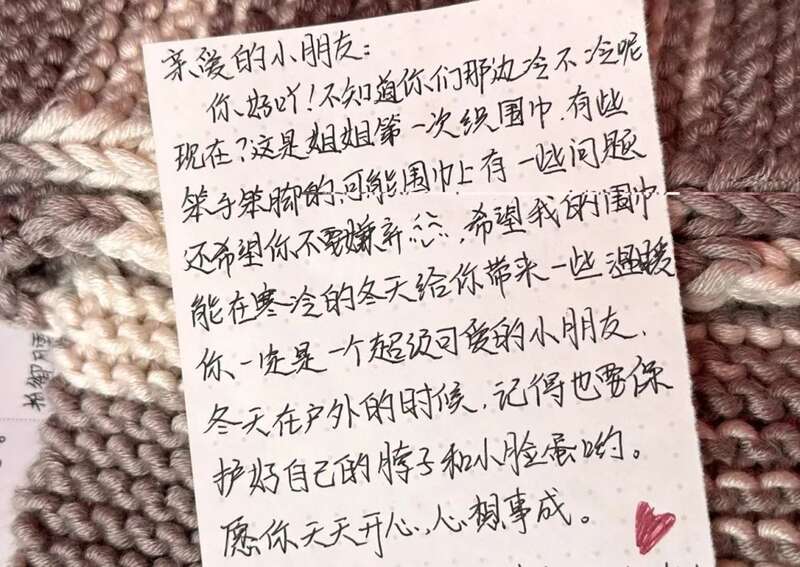 亲爱的小朋友：
你好吖！不知道你们那边冷不冷呢
现在？这是姐姐第一次织围巾，有些
笨手笨脚的，可能围巾上有一些问题
还希望你不要嫌弃，希望我的围巾
能在寒冷的冬天给你带来一些温暖
你一定是一个超级可爱的小朋友，
冬天在户外的时候，记得也要保
护好自己的脖子和小脸蛋哟。
愿你天天开心，心想事成。